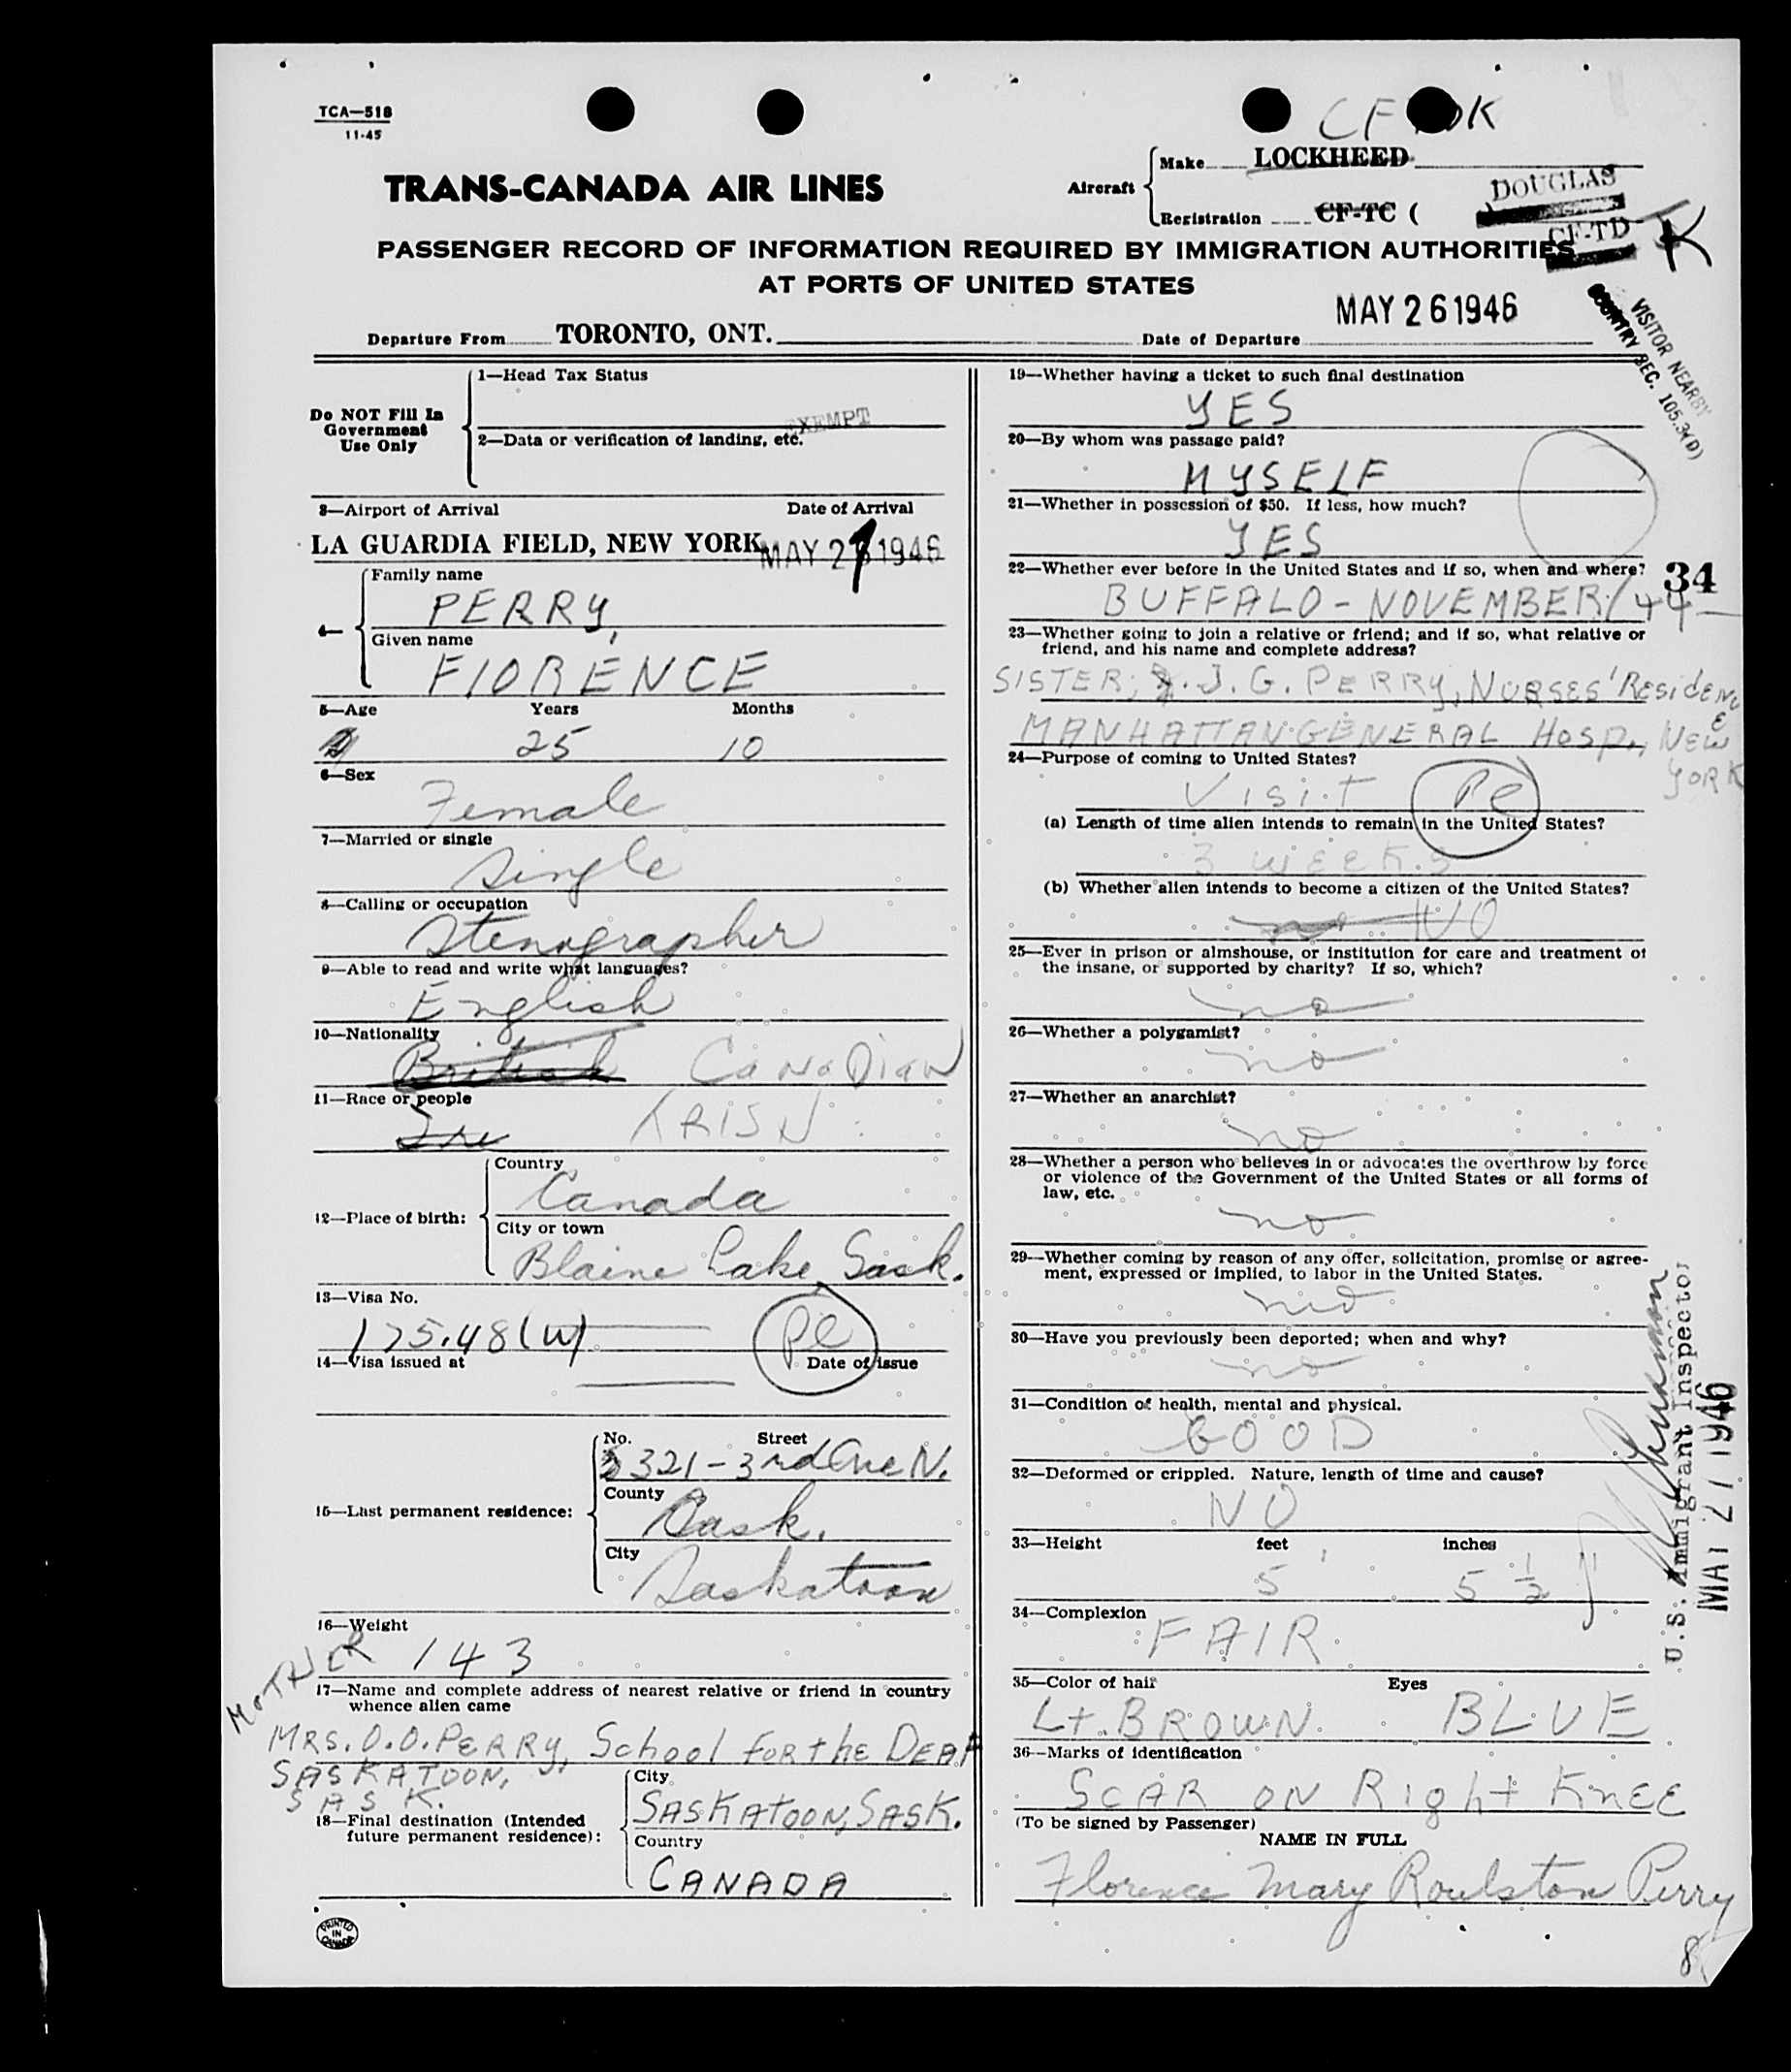 TCA—518
11-45
CF
TRANS-CANADA AIR LINES
Aircraft
Make LOCKHEED
DOUGLAS
Registration CF-TC (
CF-TD
K
PASSENGER RECORD OF INFORMATION REQUIRED BY IMMIGRATION AUTHORITIES
AT PORTS OF UNITED STATES
Departure From TORONTO, ONT.
Date of Departure MAY 26 1946
VISITOR NEARBY
COUNTRY SEC. 105.3(D)
Do NOT Fill In
Government
Use Only
1—Head Tax Status
EXEMPT
2—Data or verification of landing, etc.
3—Airport of Arrival Date of Arrival
LA GUARDIA FIELD, NEW YORK MAY 27 1946
4—
Family name
PERRY,
Given name
FlORENCE
5—Age Years Months
25 10
6—Sex
Female
7—Married or single
Single
8—Calling or occupation
Stenographer
9—Able to read and write what languages?
English
10—Nationality
British CANADIAN
11—Race or people
Ire IRISH
12—Place of birth:
Country
Canada
City or town
Blaine Lake, Sask.
13—Visa No.
175.48(W)
Pl
14—Visa issued at Date of issue
15—Last permanent residence:
No. Street
321-3rd Ave N.
County
Sask.
City
Saskatoon
16—Weight
143
MOTHER
17—Name and complete address of nearest relative or friend in country
whence alien came
MRS. O.O. PERRY, School FOR thE DEAF
SASKATOON,
SASK.
18—Final destination (Intended
future permanent residence):
City
SASKATOON, SASK.
Country
CANADA
PRINTED
IN
CANADA
19—Whether having a ticket to such final destination
YES
20—By whom was passage paid?
MYSELF
21—Whether in possession of $50. If less, how much?
YES
22—Whether ever before in the United States and if so, when and where?
34
BUFFALO - NOVEMBER/44
23—Whether going to join a relative or friend; and if so, what relative or
friend, and his name and complete address?
SISTER, J. G. PERRY, NURSES' RESIDENCE
MANHATTAN GENERAL HOSP., NEW
YORK
24—Purpose of coming to United States?
Visit Pl
(a) Length of time alien intends to remain in the United States?
3 WEEKS
(b) Whether alien intends to become a citizen of the United States?
no NO
25—Ever in prison or almshouse, or institution for care and treatment of
the insane, or supported by charity? If so, which?
no
26—Whether a polygamist?
no
27—Whether an anarchist?
no
28—Whether a person who believes in or advocates the overthrow by force
or violence of the Government of the United States or all forms of
law, etc.
no
29—Whether coming by reason of any offer, solicitation, promise or agree-
ment, expressed or implied, to labor in the United States.
no
30—Have you previously been deported; when and why?
no
31—Condition of health, mental and physical.
GOOD
32—Deformed or crippled. Nature, length of time and cause?
NO
33—Height feet inches
5' 5 1/2
34—Complexion
FAIR
35—Color of hair Eyes
Lt. BROWN BLUE
36—Marks of identification
SCAR ON Right KnEE
(To be signed by Passenger)
NAME IN FULL
Florence Mary Roulston Perry
U.S. Immigrant Inspector
MAY 27 1946